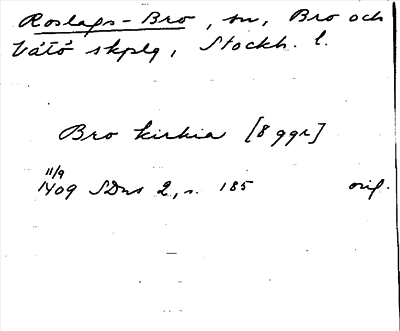 Roslags-Bro, sn, Bro och
Vätö skplg, Stockh. l.
Bro kirkia [8 ggr]
11/9
1409 SDns 2, s. 185 orig.